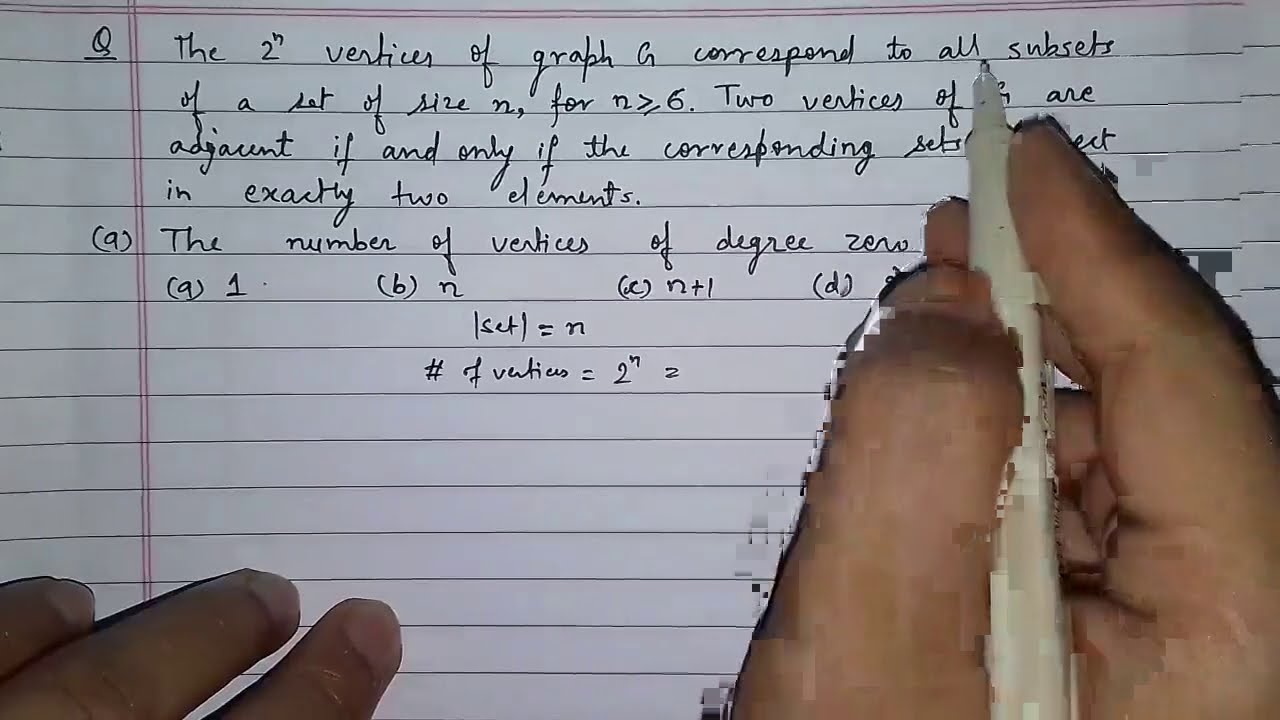 Q The 2ⁿ vertices of graph G correspond to all subsets
of a set of size n, for n ⩾ 6. Two vertices of G are
adjacent if and only if the corresponding sets
in exactly two elements.
(a) The number of vertices of degree zero
(a) 1 (b) n (c) n+1 (d)
|set| = n
# of vertices = 2ⁿ =